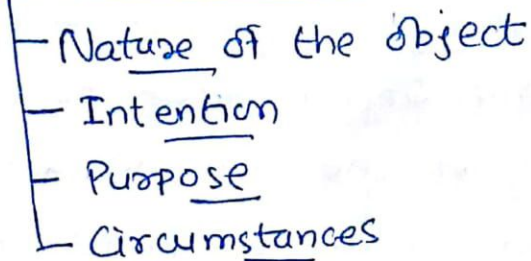 Nature of the object
Intention
Purpose
Circumstances